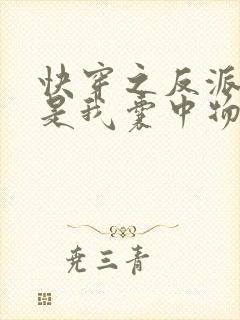 快穿之反派
是我囊中物
尧三青